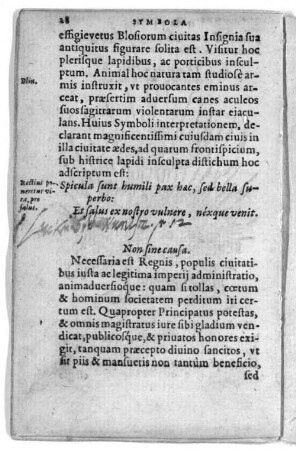 28 SYMBOLA
effigievetus Blosiorum ciuitas Insignia sua
antiquitus figurare solita est. Visitur hoc
plerisque lapidibus, ac porticibus insculptum.
Animal hoc natura tam studiosè armis
Plin.
instruxit, vt prouocantes eminus arceat,
præsertim aduersum canes aculeos
suos sagittarum violentarum instar eiaculans.
Huius Symboli interpretationem, declarant
magnificentissimi cuiusdam ciuis in
illa ciuitate ædes, ad quarum frontispicium,
sub histrice lapidi insculpta distichum hoc
adscriptum est:
Spicula sunt humili pax hæc, sed bella superbo:
Et salus ex nostro vulnere, néxque venit.
Non sine causa.
Necessaria est Regnis, populis ciuitatibus
iusta ac legitima imperij administratio,
animaduersioque: quam si tollas, cœtum
& hominum societatem perditum iri certum
est. Quapropter Principatus potestas,
& omnis magistratus iure sibi gladium vendicat,
publicosq́ue, & priuatos honores exigit,
tanquam præcepto diuino sancitos, vt
sit piis & mansuetis non tantùm beneficio,
sed